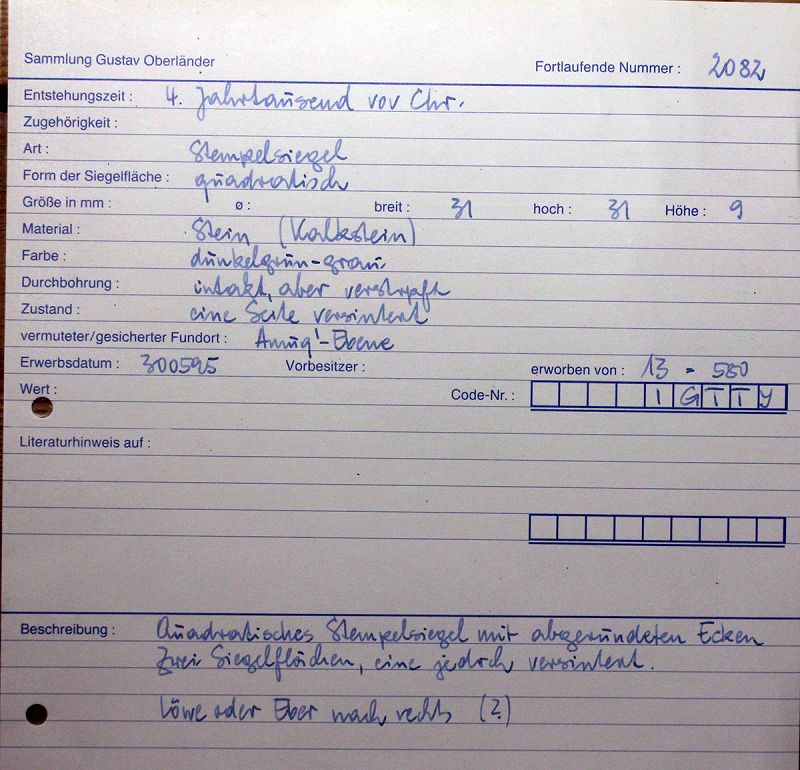 Sammlung Gustav Oberländer
Fortlaufende Nummer : 2082
Entstehungszeit : 4. Jahrtausend vor Chr.
Zugehörigkeit :
Art : Stempelsiegel
Form der Siegelfläche : quadratisch
Größe in mm : ø : breit : 31 hoch : 31 Höhe : 9
Material : Stein (Kalkstein)
Farbe : dunkelgrün-grau
Durchbohrung : intakt, aber verstopft
Zustand : eine Seite versintert
vermuteter/gesicherter Fundort : Amuq'-Ebene
Erwerbsdatum : 300595 Vorbesitzer : erworben von : 13 - 580
Wert : Code-Nr. : I G T T Y
Literaturhinweis auf :
Beschreibung : Quadratisches Stempelsiegel mit abgerundeten Ecken
Zwei Siegelflächen, eine jedoch versintert.
Löwe oder Eber nach rechts (?)